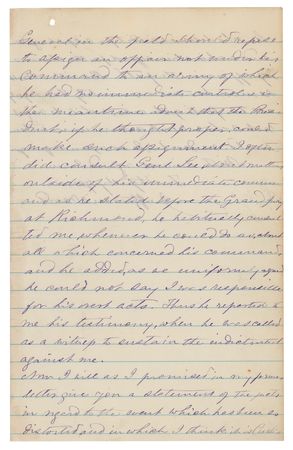 General in the field should refuse
to assign an officer not under his
Command to an army of which
he had no immediate control in
the meantime admit that the Pres
ident, if he thought proper, could
make such assignment. I often
did consult Genl Lee about matters
outside of his immediate comman
and as he stated before the Grand jury
at Richmond, he habitually consul
ted me whenever he could do so, about
all which concerned his command,
and he added, as we uniformly agreed
he could not say I was responsible
for his overt acts. Thus he reported to
me his testimony, when he was called
as a witness to sustain the indictment
against me.
Now I will as I promised in my former
letter give you a statement of the facts
in regard to the event which has been so
distorted and in which I think it is